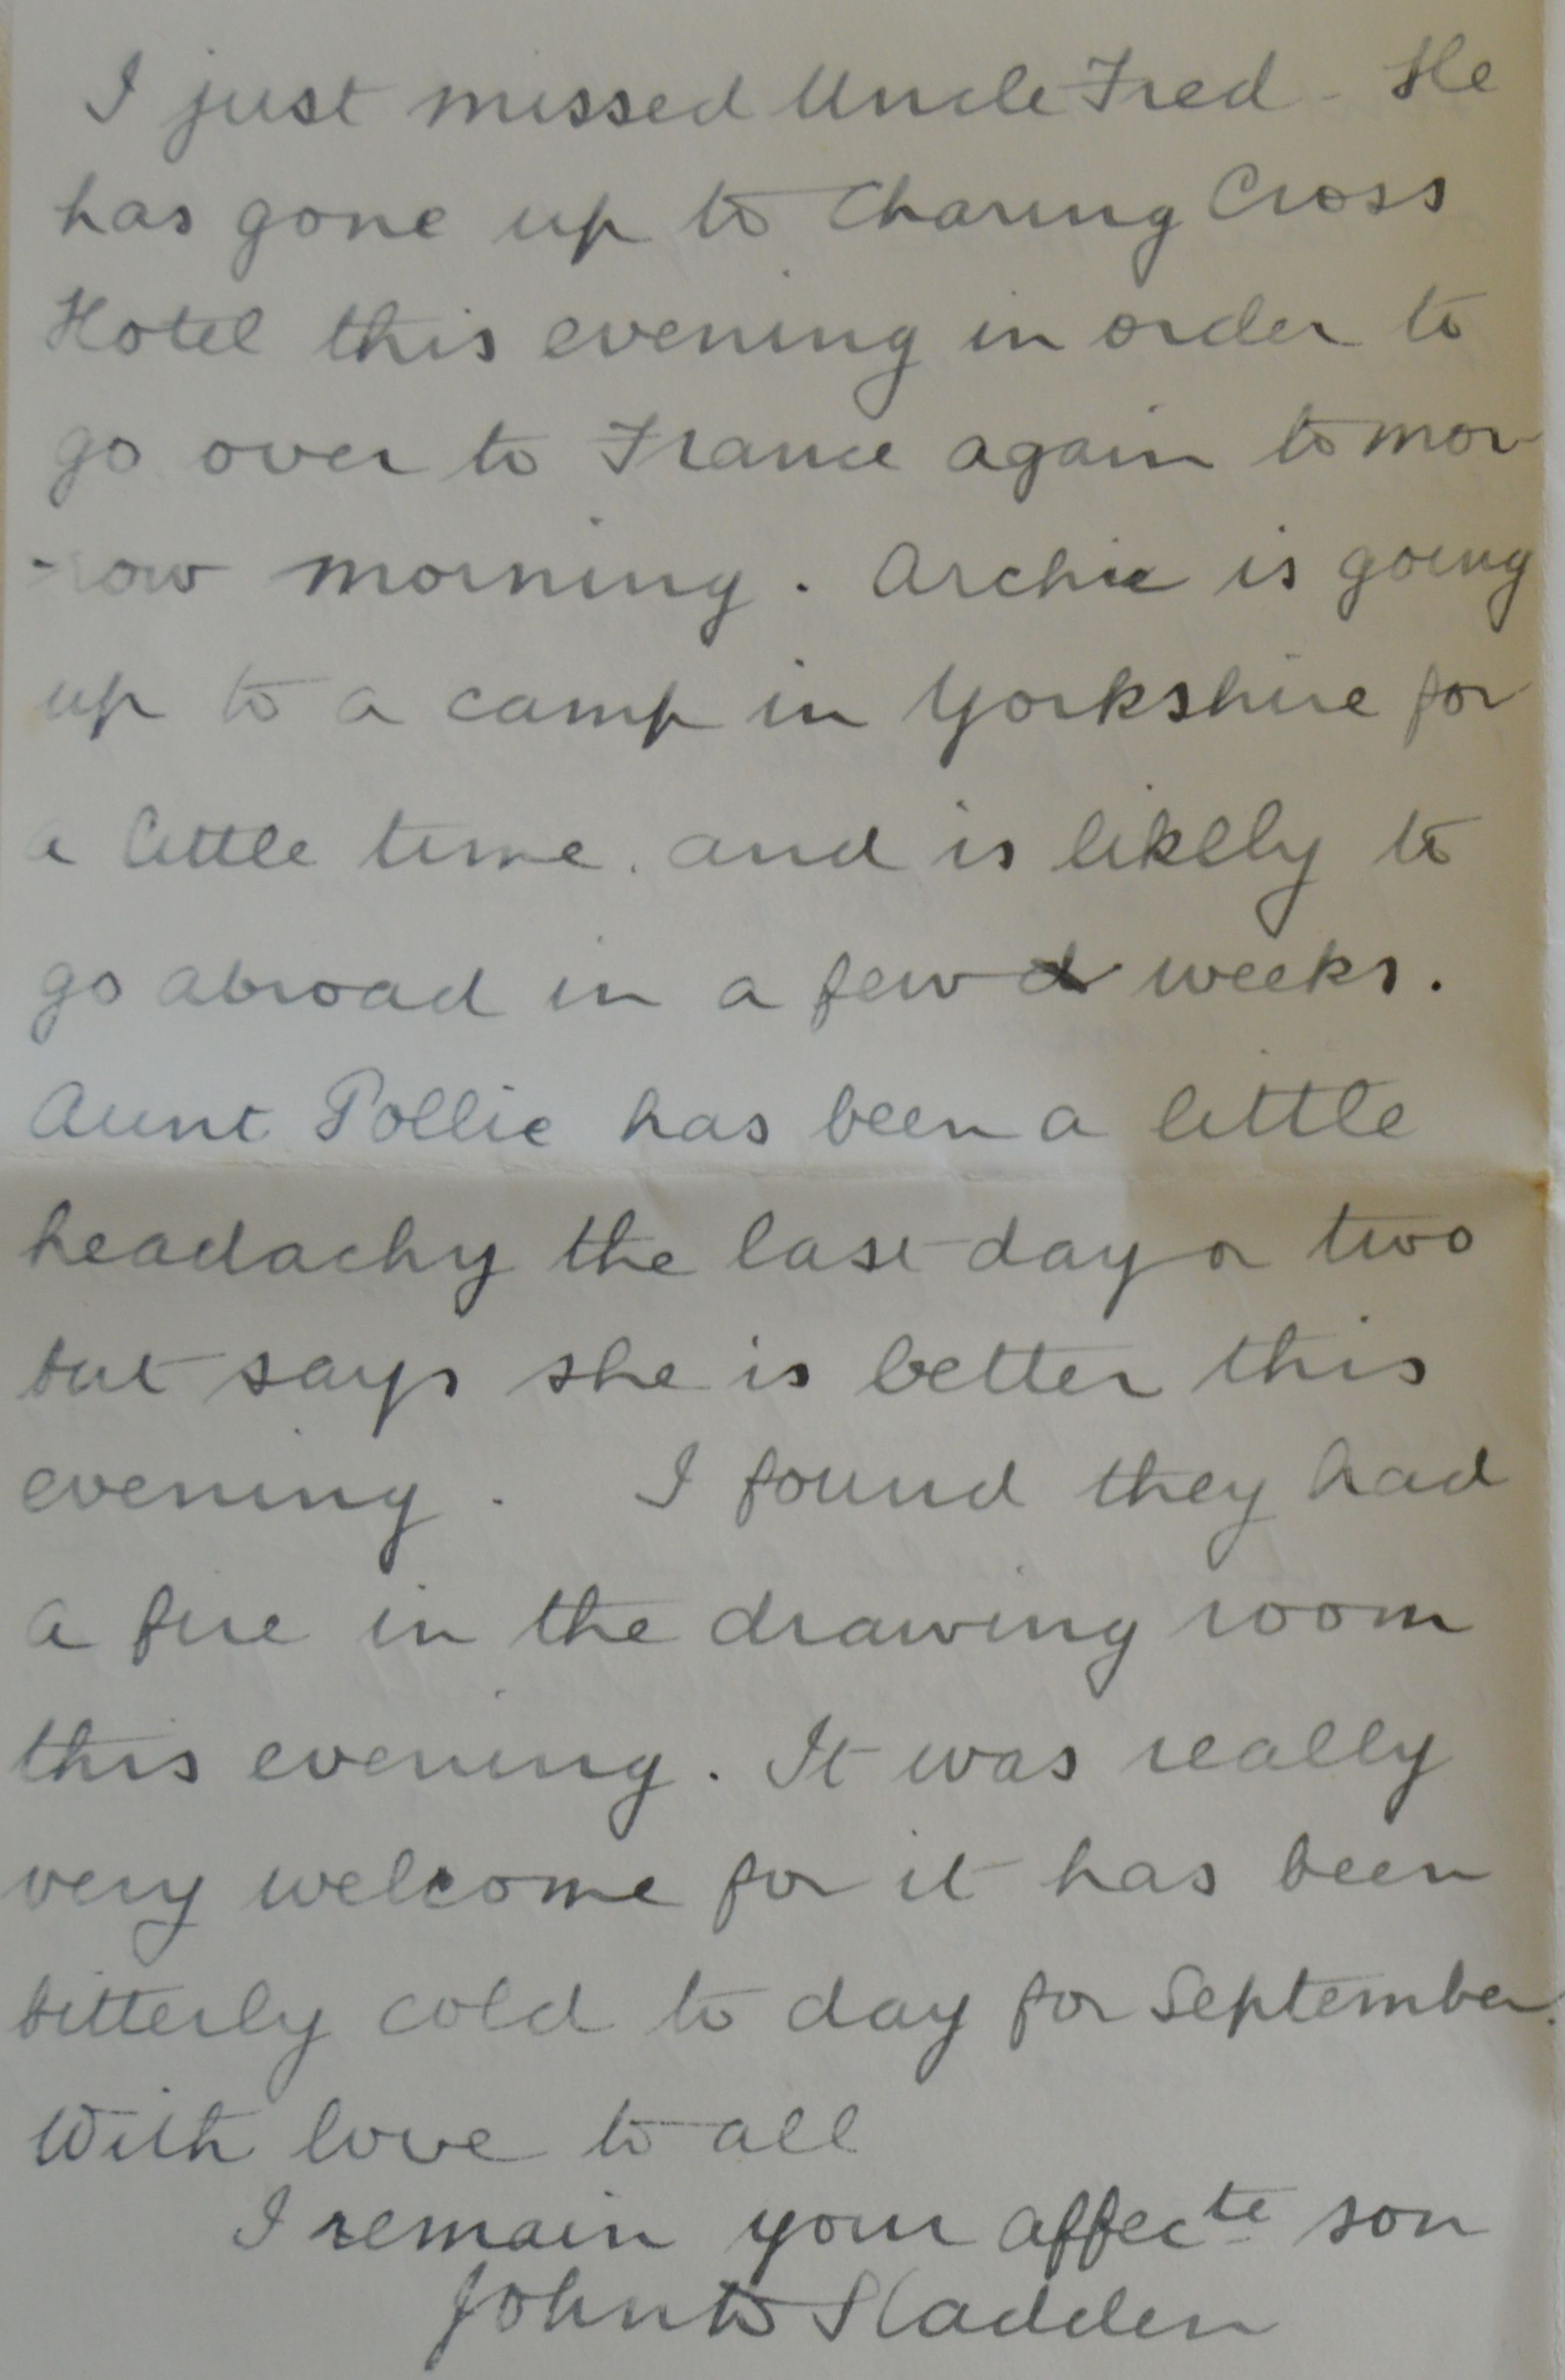 I just missed Uncle Fred - He
has gone up to Charing Cross
Hotel this evening in order to
go over to France again tomor
-row morning. Archie is going
up to a camp in Yorkshire for
a little time. and is likely to
go abroad in a few d weeks.
Aunt Pollie has been a little
headachy the last day or two
but says she is better this
evening. I found they had
a fire in the drawing room
this evening. It was really
very welcome for it has been
bitterly cold to day for September.
With love to all
I remain your affecte son
John B Sladden